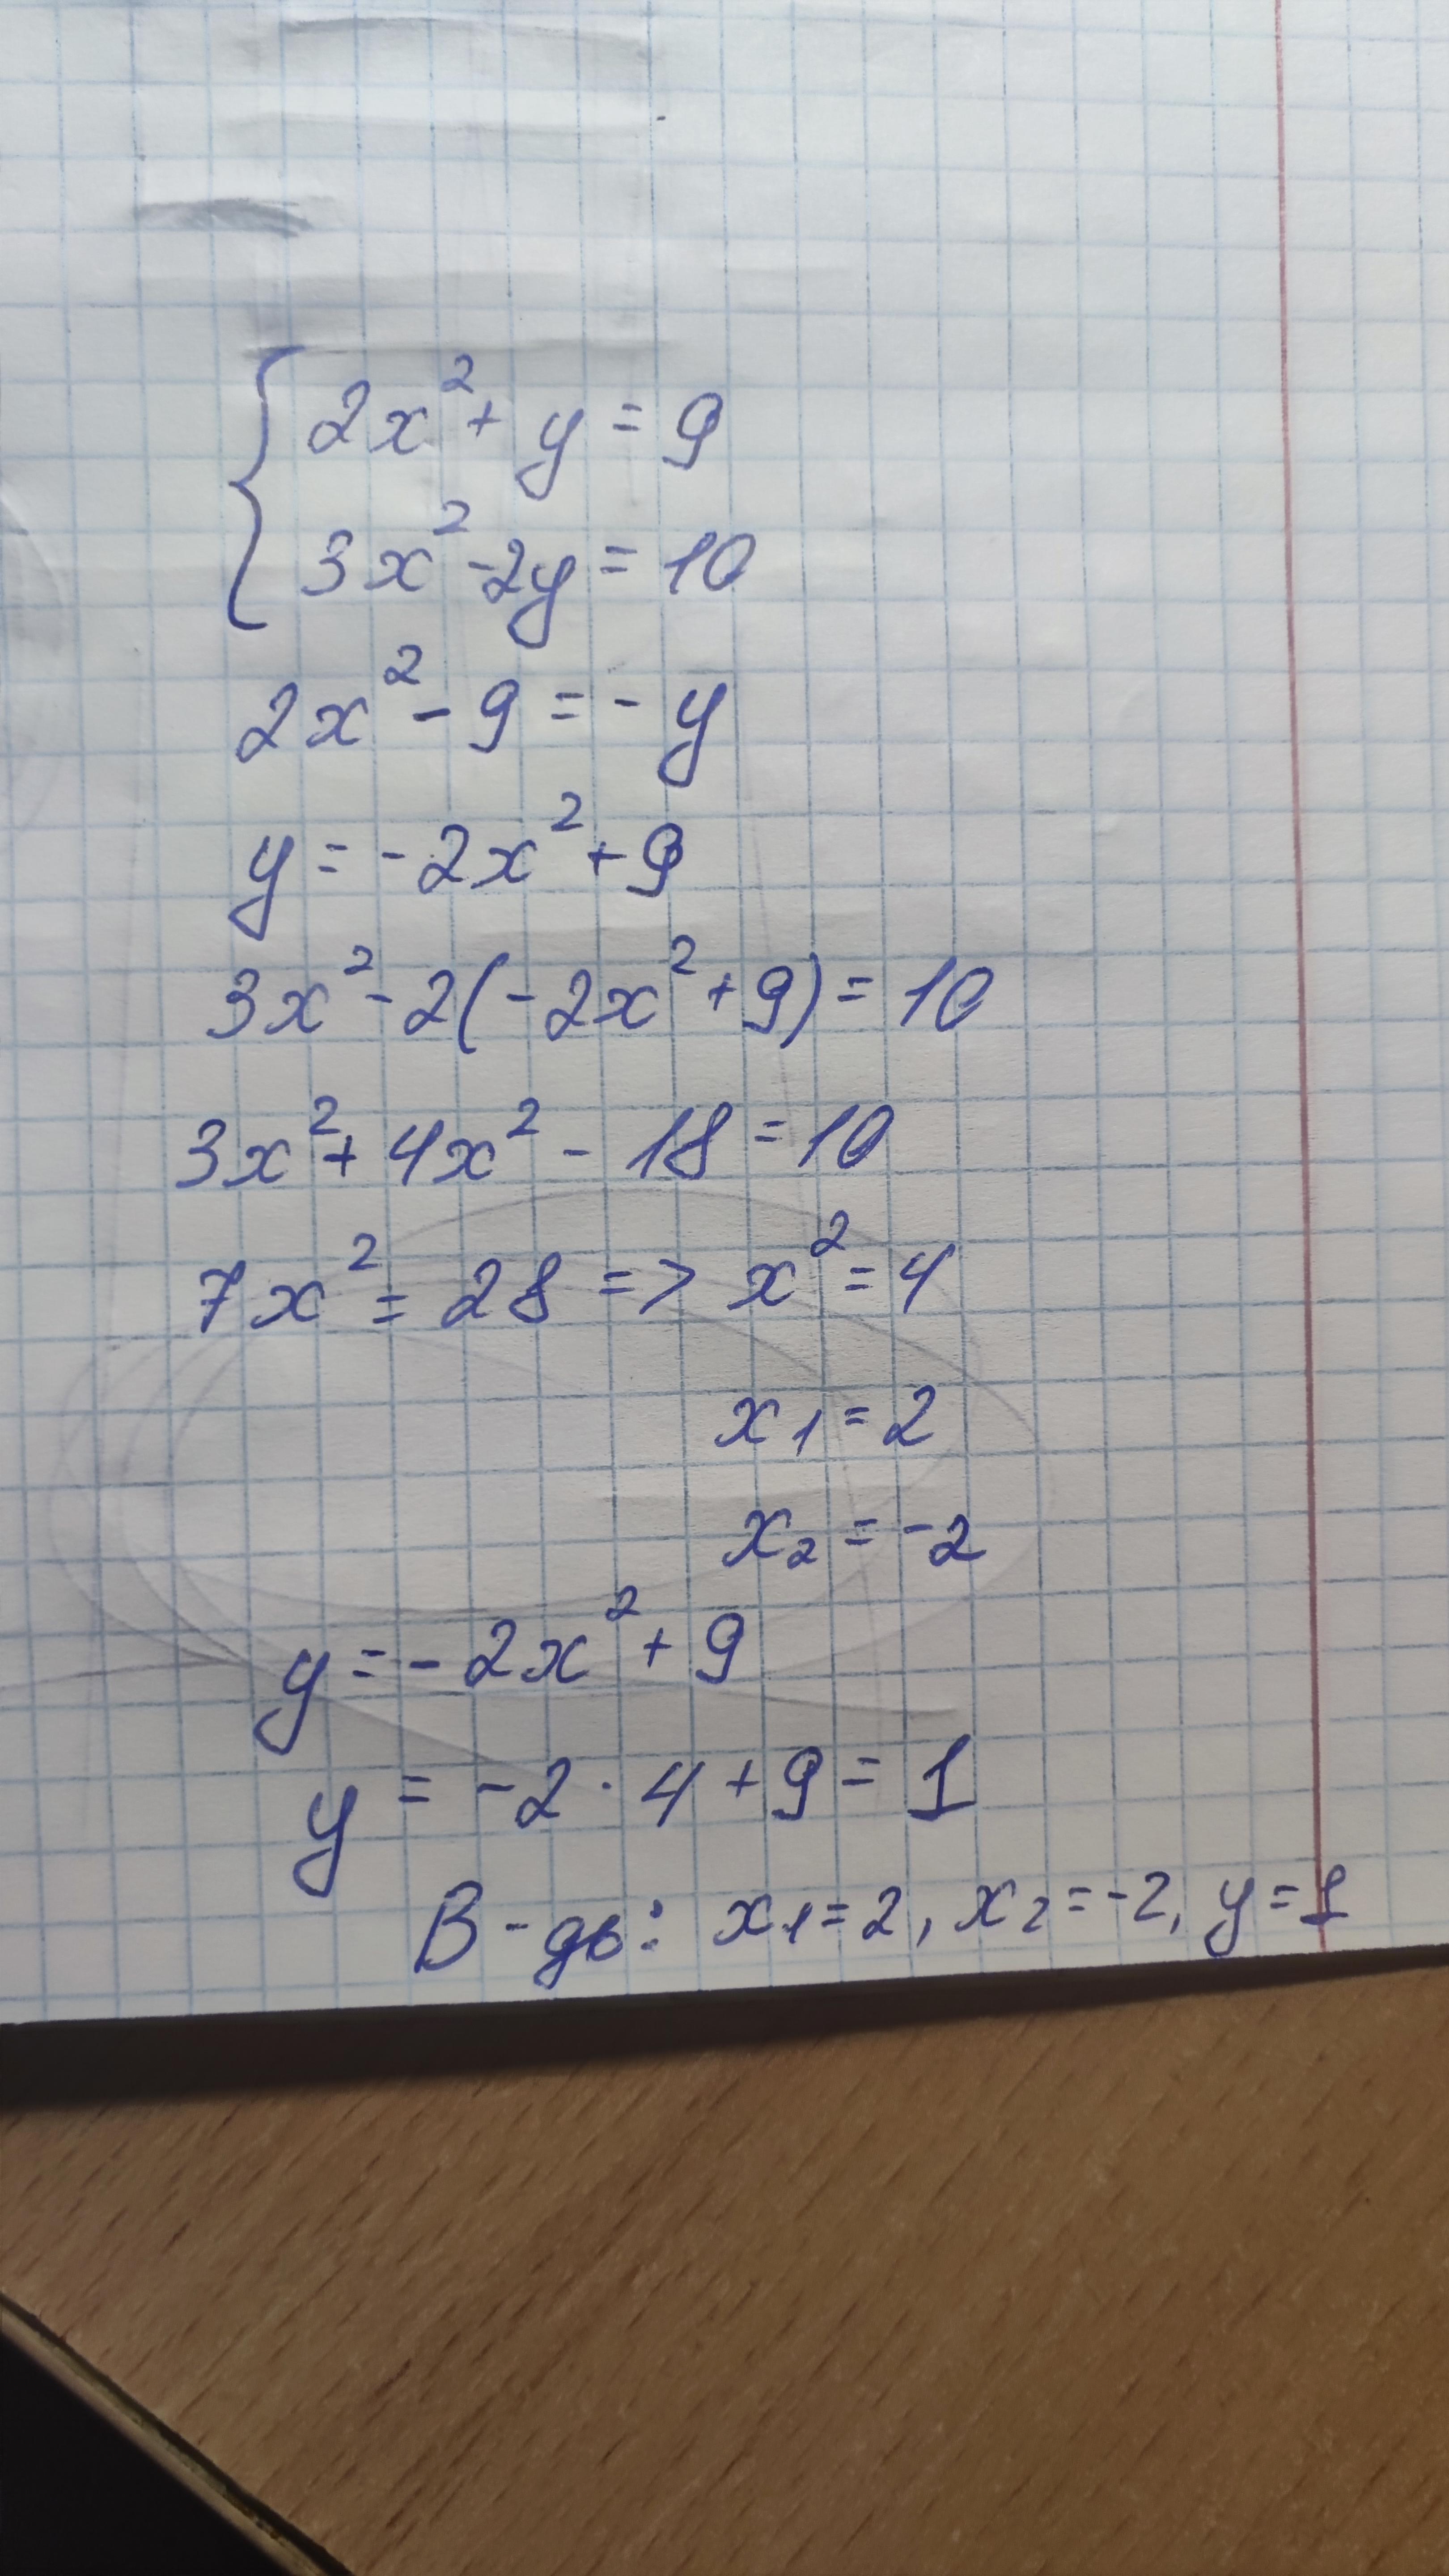 { 2x² + y = 9
3x² - 2y = 10
2x² - 9 = - y
y = - 2x² + 9
3x² - 2(-2x² + 9) = 10
3x² + 4x² - 18 = 10
7x² = 28 => x² = 4
x₁ = 2
x₂ = -2
y = - 2x² + 9
y = -2 · 4 + 9 = 1
В-дь: x₁ = 2, x₂ = -2, y = 1